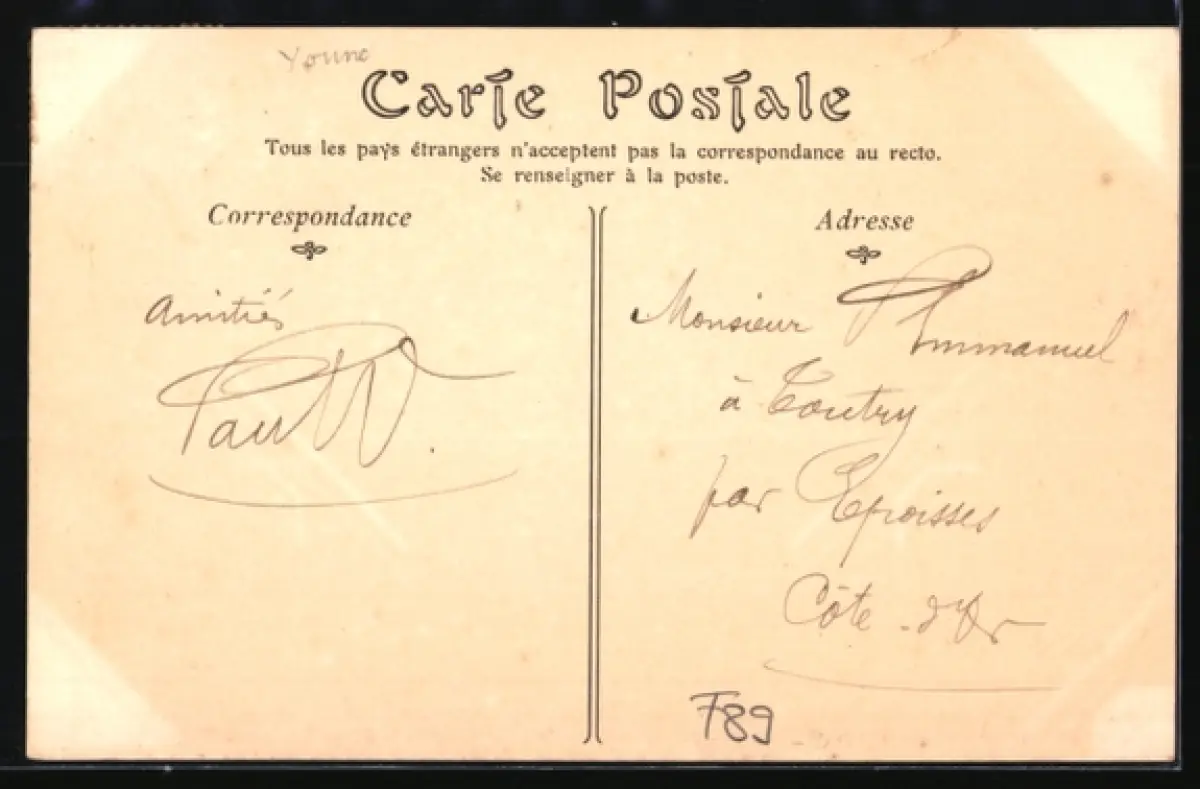 Yonne
Carte Postale
Tous les pays étrangers n'acceptent pas la correspondance au recto.
Se renseigner à la poste.
Correspondance
Amitiés
Paul
Adresse
Monsieur Emmanuel
à Toutry
par Epoisses
Côte-d'Or
F89